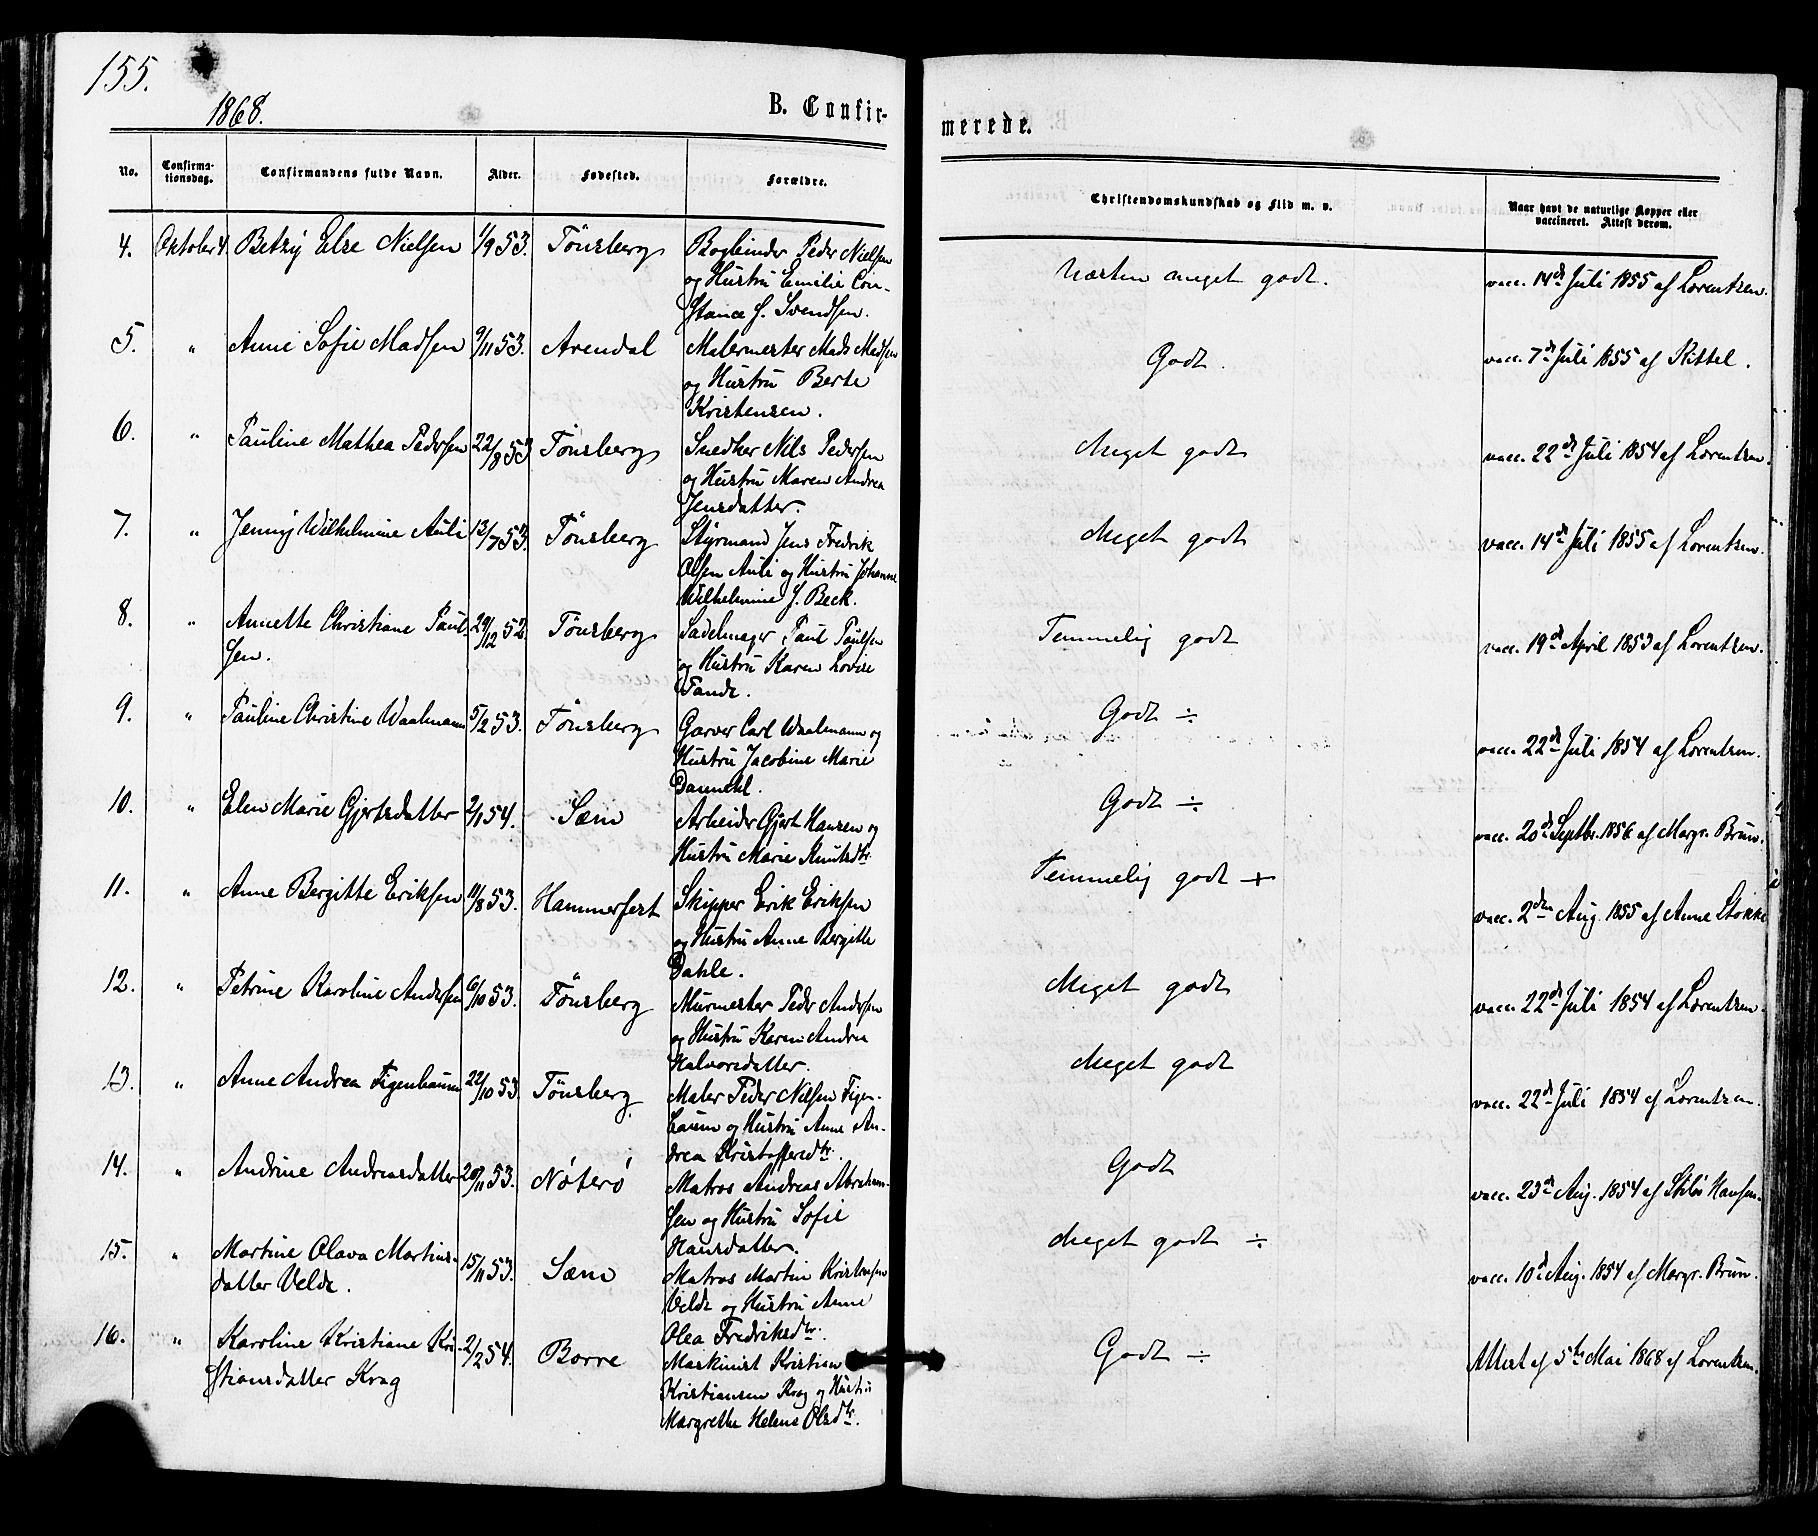 155.
1868.
B. Confir-
merede.
No.
Confirma-
tionsdag.
Confirmandens fulde Navn.
Alder.
Fødested.
Forældre.
Christendomskundskab og Flid m. v.
Naar havt de naturlige Kopper eller
vaccineret. Attest derom.
4. Oktober 4. Betzy Else Nielsen 1/9 53. Tönsberg Bogbinder Peder Nielsen
og Hustru Emilie Con-
stance S. Svendsen.
Næsten meget godt. vacc. 14de Juli 1855 af Lorentzen.
5. " Anne Sofie Madsen 9/11 53. Arendal Malermester Mads Madsen
og Hustru Berte
Kristensen.
Godt. vacc. 7de Juli 1855 af Kittel.
6. " Pauline Mathea Pedersen 22/8 53 Tönsberg Snedker Nils Pedersen
og Hustru Maren Andrea
Jensdatter.
Meget godt vacc. 22de Juli 1854 af Lorentzen.
7. " Jenny Wilhelmine Auli 13/7 53. Tönsberg Styrmand Jens Fredrik
Olsen Auli og Hustru Johanne
Wilhelmine J. Beck.
Meget godt vacc. 14de Juli 1855 af Lorentzen.
8. " Annette Christiane Paul-
sen. 29/12 52. Tönsberg Sadelmager Paul Paulsen
og Hustru Karen Lovise
Tande.
Temmelig godt vacc. 19de April 1853 af Lorentzen.
9. " Pauline Christine Waalmann 5/2 53. Tönsberg Garver Carl Waalmann og
Hustru Jacobine Marie
Godt ÷ vacc. 22de Juli 1854 af Lorentzen.
10. " Elen Marie Gjertsdatter 2/1 54. Sæm Arbeider Gjert Hansen og
Hustru Marie Knutsdtr
Godt ÷ vacc. 20de Septbr. 1856 af Margr. Brun.
11. " Anne Bergitte Eriksen 11/8 53. Hammerfest Skipper Erik Eriksen
og Hustru Anne Bergitte
Dahle.
Temmelig godt + vacc. 2den Aug. 1855 af Anne Stokke
12. " Petrine Karoline Andersen 6/10 53. Tönsberg Murmester Peder Andersen
og Hustru Karen Andrea
Halvorsdatter.
Meget godt vacc. 22de Juli 1854 af Lorentzen.
13. " Anne Andrea Figenbaum 22/10 53. Tönsberg Maler Peder Nilsen Figen-
baum og Hustru Anne An-
drea Kristoffersdtr.
Meget godt vacc. 22de Juli 1854 af Lorentzen.
14. " Andrine Andreasdatter 20/11 53. Nöterö Matros Andreas Abraham-
sen og Hustru Sofie
Hansdatter.
Godt vacc. 23de Aug. 1854 af Hansen.
15. " Martine Olava Martins-
datter Velde. 15/11 53. Sæm Matros Martin Kristensen
Velde og Hustru Anne
Olea Fredriksdtr.
Meget godt ÷ vacc. 10de Aug. 1854 af Margr. Brun.
16. " Karoline Kristiane Kri-
stiansdatter Krag 2/2 54. Borre Maskinist Kristian
Kristiansen Krog og Hustru
Margrethe Helene Olsdtr.
Godt ÷ Attest af 5te Mai 1868 af Lorentzen.